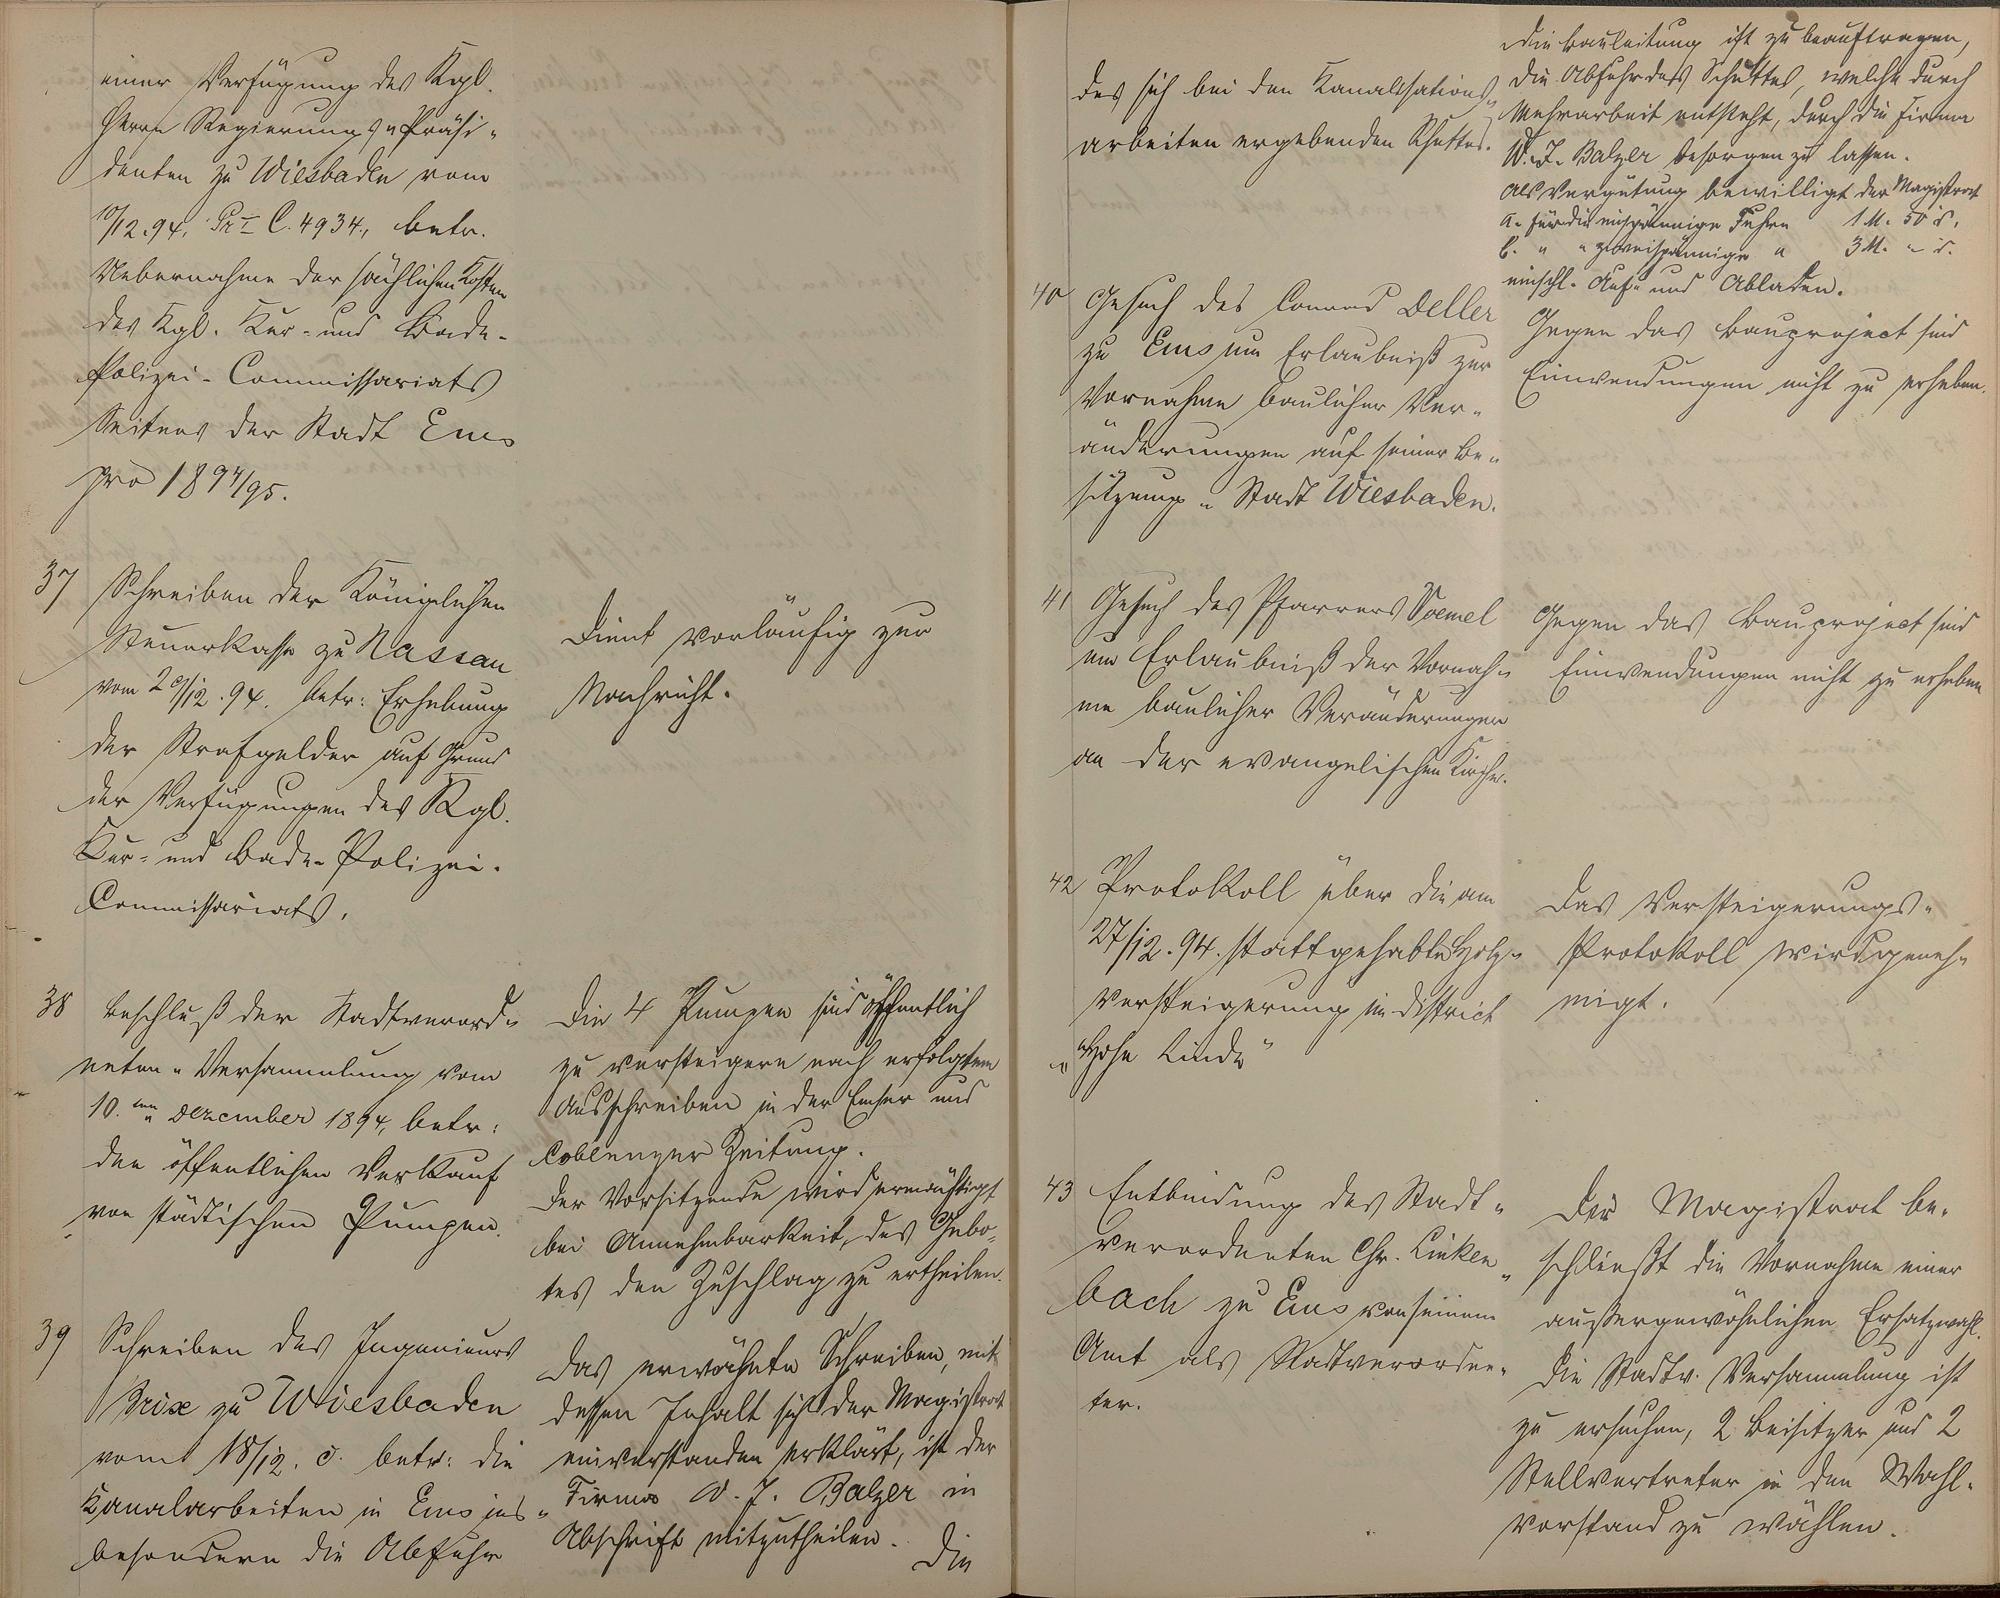 einer Verfügung des Kgl.
Herrn Regierungs-Präsi-
denten zu Wiesbaden vom
10/12.94. Pr I C. 4934., betr.
Uebernahme der sächlichen Kosten
des Kgl. Kur- und Bade-
Polizei-Commissariats
Seitens der Stadt Ems
pro 1894/95.
37 Schreiben der Königlichen
Steuerkasse zu Nassau
vom 20/12.94. betr: Erhebung
der Strafgelder auf Grund
der Verfügungen des Kgl.
Kur- und Bade-Polizei-
Commissariats.
Dient vorläufig zur
Nachricht.
38 Beschluß der Stadtverord-
neten-Versammlung vom
10.ten Dezember 1894, betr:
den öffentlichen Verkauf
von städtischen Pumpen.
Die 4 Pumpen sind öffentlich
zu versteigern nach erfolgtem
Ausschreiben in der Emser und
Coblenzer Zeitung.
Der Vorsitzende wird ermächtigt
bei Annehmbarkeit, des Gebo-
tes den Zuschlag zu ertheilen.
39 Schreiben des Ingenieurs
Brix zu Wiesbaden
vom 18/12. c. betr: die
Kanalarbeiten in Ems ins-
besondern die Abfuhr
Das erwähnte Schreiben, mit
dessen Inhalt sich der Magistrat
einverstanden erklärt, ist der
Firma W. J. Balzer in
Abschrift mitzutheilen.
Die
des sich bei den Kanalisations-
arbeiten ergebenden Schuttes.
Die Bauleitung ist zu beauftragen,
die Abfuhr des Schuttes, welche durch
Mehrarbeit entsteht, durch die Firma
W. J. Balzer besorgen zu lassen.
Als Vergütung bewilligt der Magistrat
a. für die einspännige Fuhre 1 M. 50 d.
b. " " zweispännige " 3 M. - d.
einschl. Auf- und Abladen.
40 Gesuch des Conrad Deller
zu Ems um Erlaubniß zur
Vornahme baulicher Ver-
änderungen auf seiner Be-
sitzung - Stadt Wiesbaden.
Gegen das Bauproject sind
Einwendungen nicht zu erheben.
41 Gesuch des Pfarrers Voemel
um Erlaubniß der Vornah-
me baulicher Veränderungen
an der evangelischen Kirche.
Gegen das Bauproject sind
Einwendungen nicht zu erheben
42 Protokoll über die am
27/12.94. stattgehabte Holz-
versteigerung im District
"Hohe Linde"
Das Versteigerungs-
Protokoll wird geneh-
migt.
43 Entbindung des Stadt-
verordneten Chr. Linken-
bach zu Ems von seinem
Amt als Stadtverordne-
ter.
Der Magistrat be-
schließt die Vornahme einer
außergewöhnlichen Ersatzwahl.
Die Stadtv. Versammlung ist
zu ersuchen, 2 Beisitzer und 2
Stellvertreter in den Wahl-
vorstand zu wählen.